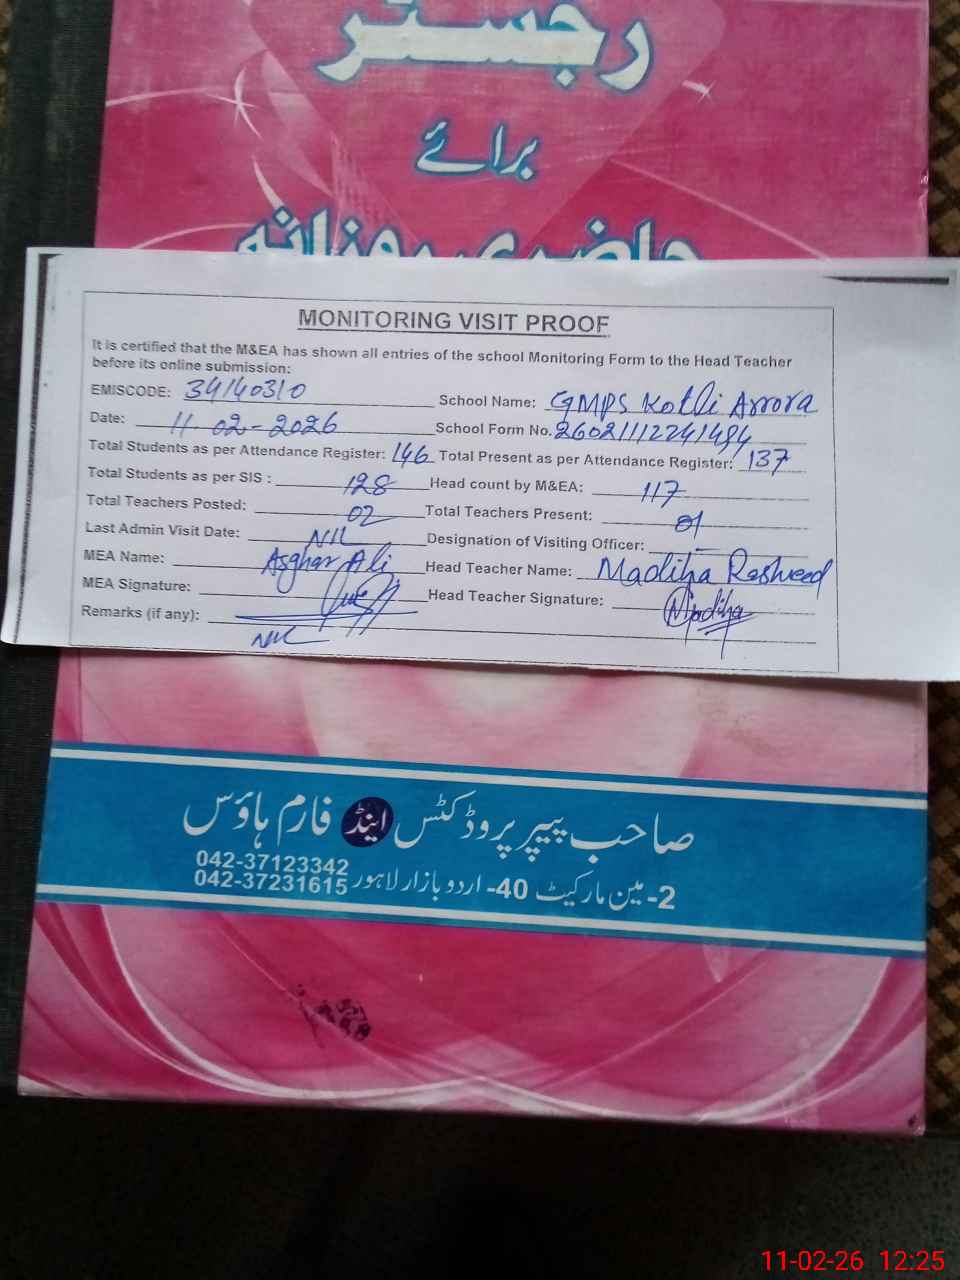 رجسٹر
برائے
حاضری روزانہ
MONITORING VISIT PROOF
It is certified that the M&EA has shown all entries of the school Monitoring Form to the Head Teacher
before its online submission:
EMISCODE: 34140310 School Name: GMPS Kotli Arrora
Date: 11-02-2026 School Form No. 26021112241484
Total Students as per Attendance Register: 146 Total Present as per Attendance Register: 137
Total Students as per SIS : 128 Head count by M&EA: 117
Total Teachers Posted: 02 Total Teachers Present: 01
Last Admin Visit Date: NIL Designation of Visiting Officer: –
MEA Name: Asghar Ali Head Teacher Name: Madiha Rasheed
MEA Signature: Head Teacher Signature: Madiha
Remarks (if any): NIL
صاحب پیپر پروڈکٹس اینڈ فارم ہاؤس
2- مین مارکیٹ 40- اردو بازار لاہور 042-37123342
042-37231615
11-02-26 12:25